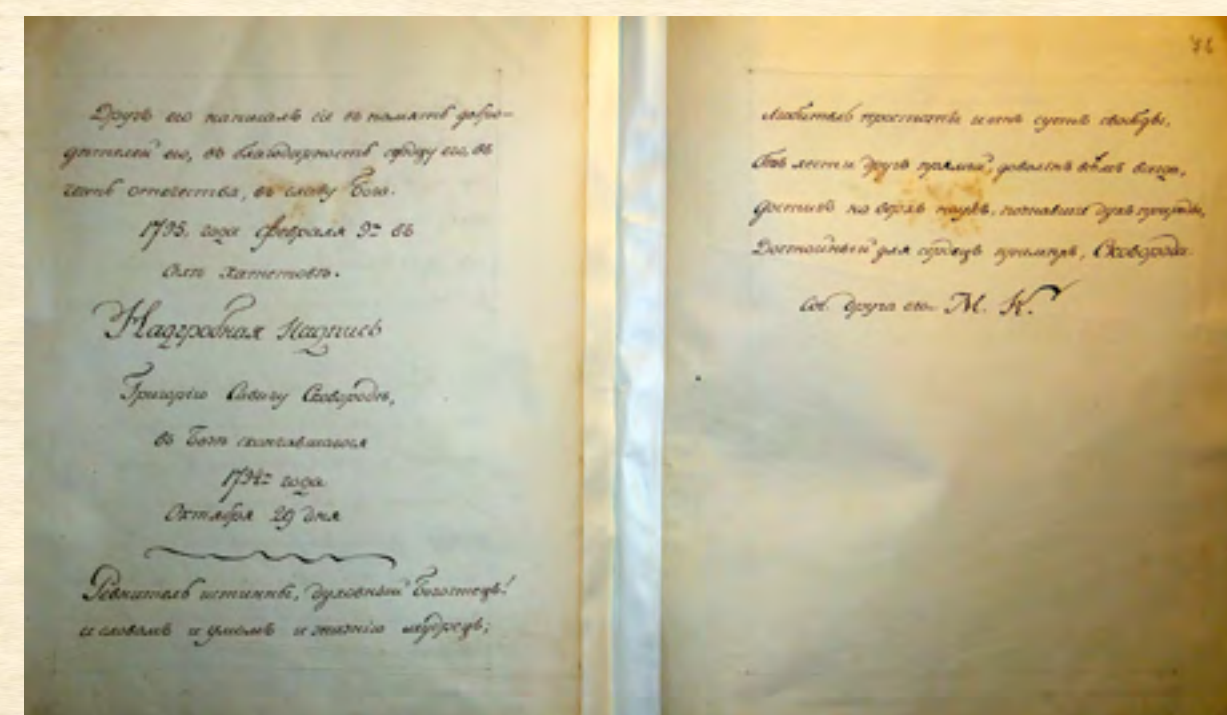 Другъ его написалъ сіе въ память добро-
дѣтелей его, въ благодарность сердцу его, въ
честь отечества, въ славу Бога.
1795. года февраля 9го въ
селѣ Хатетовѣ.
Надгробная Надпись
Григорію Савичу Сковородѣ,
въ Бозѣ скончавшагося
1794го года
Октября 29 дня
Ревнитель истинны, духовный Богочтецъ!
и словомъ и умомъ и жизнію мудрецъ;
Любитель простоты и отъ суетъ свободы,
Безъ лести другъ прямый, доволенъ всѣмъ всегда,
Достигъ на верхъ наукъ, познавши духъ природы,
Достойный для сердецъ примѣръ, Сковорода.
Соч. друга его М. К.